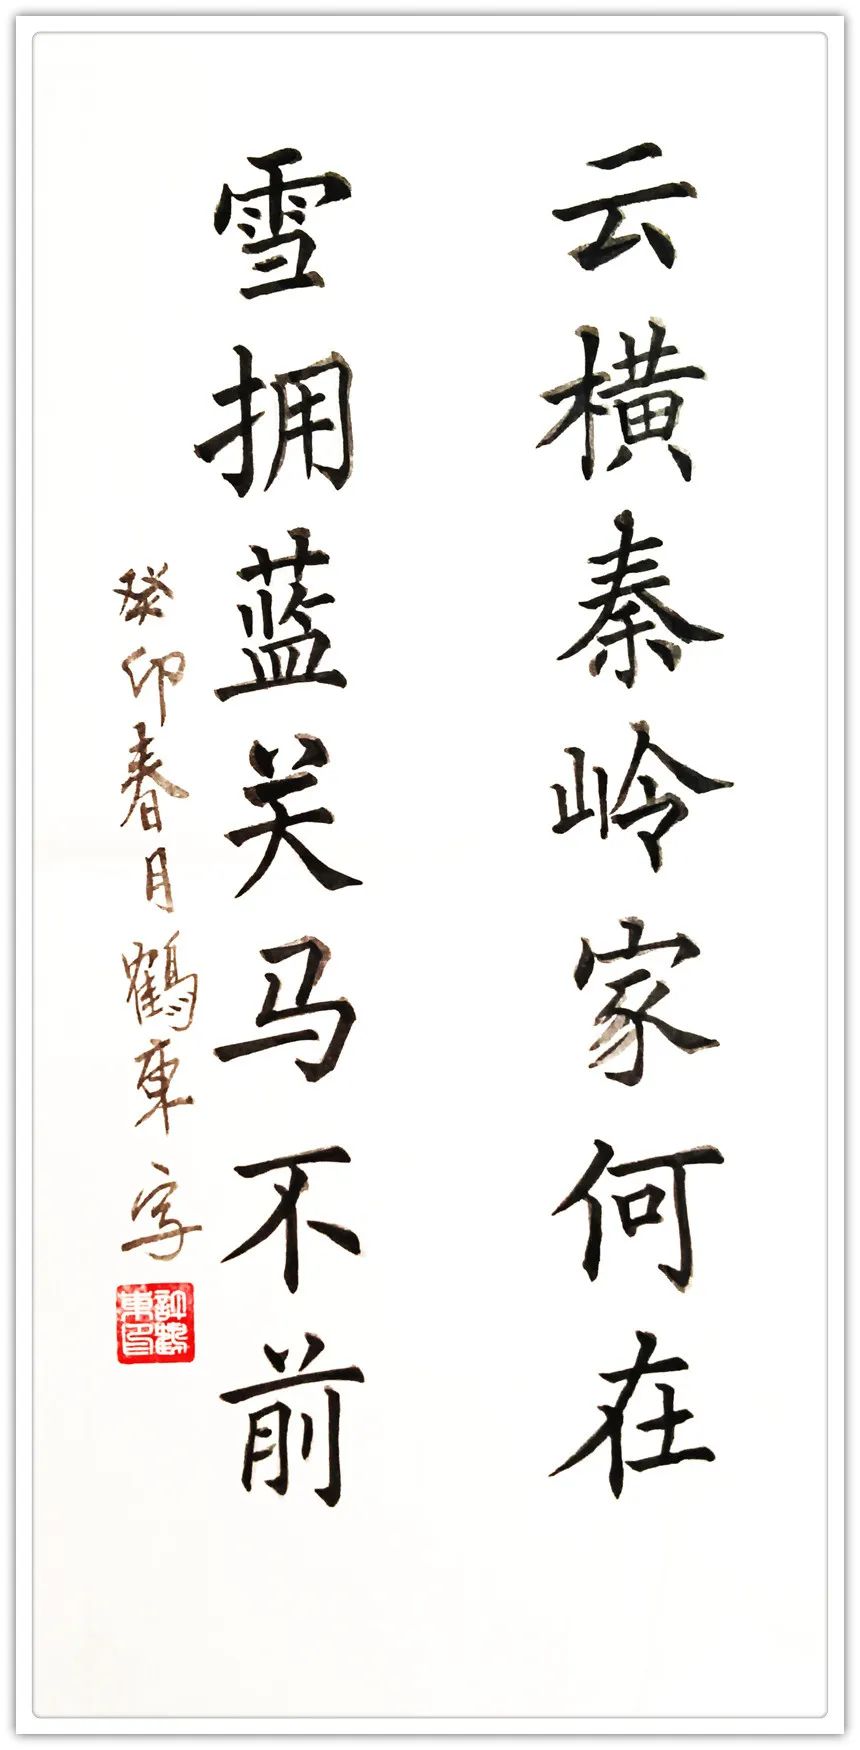 云横秦岭家何在
雪拥蓝关马不前
癸卯春月鹤东字